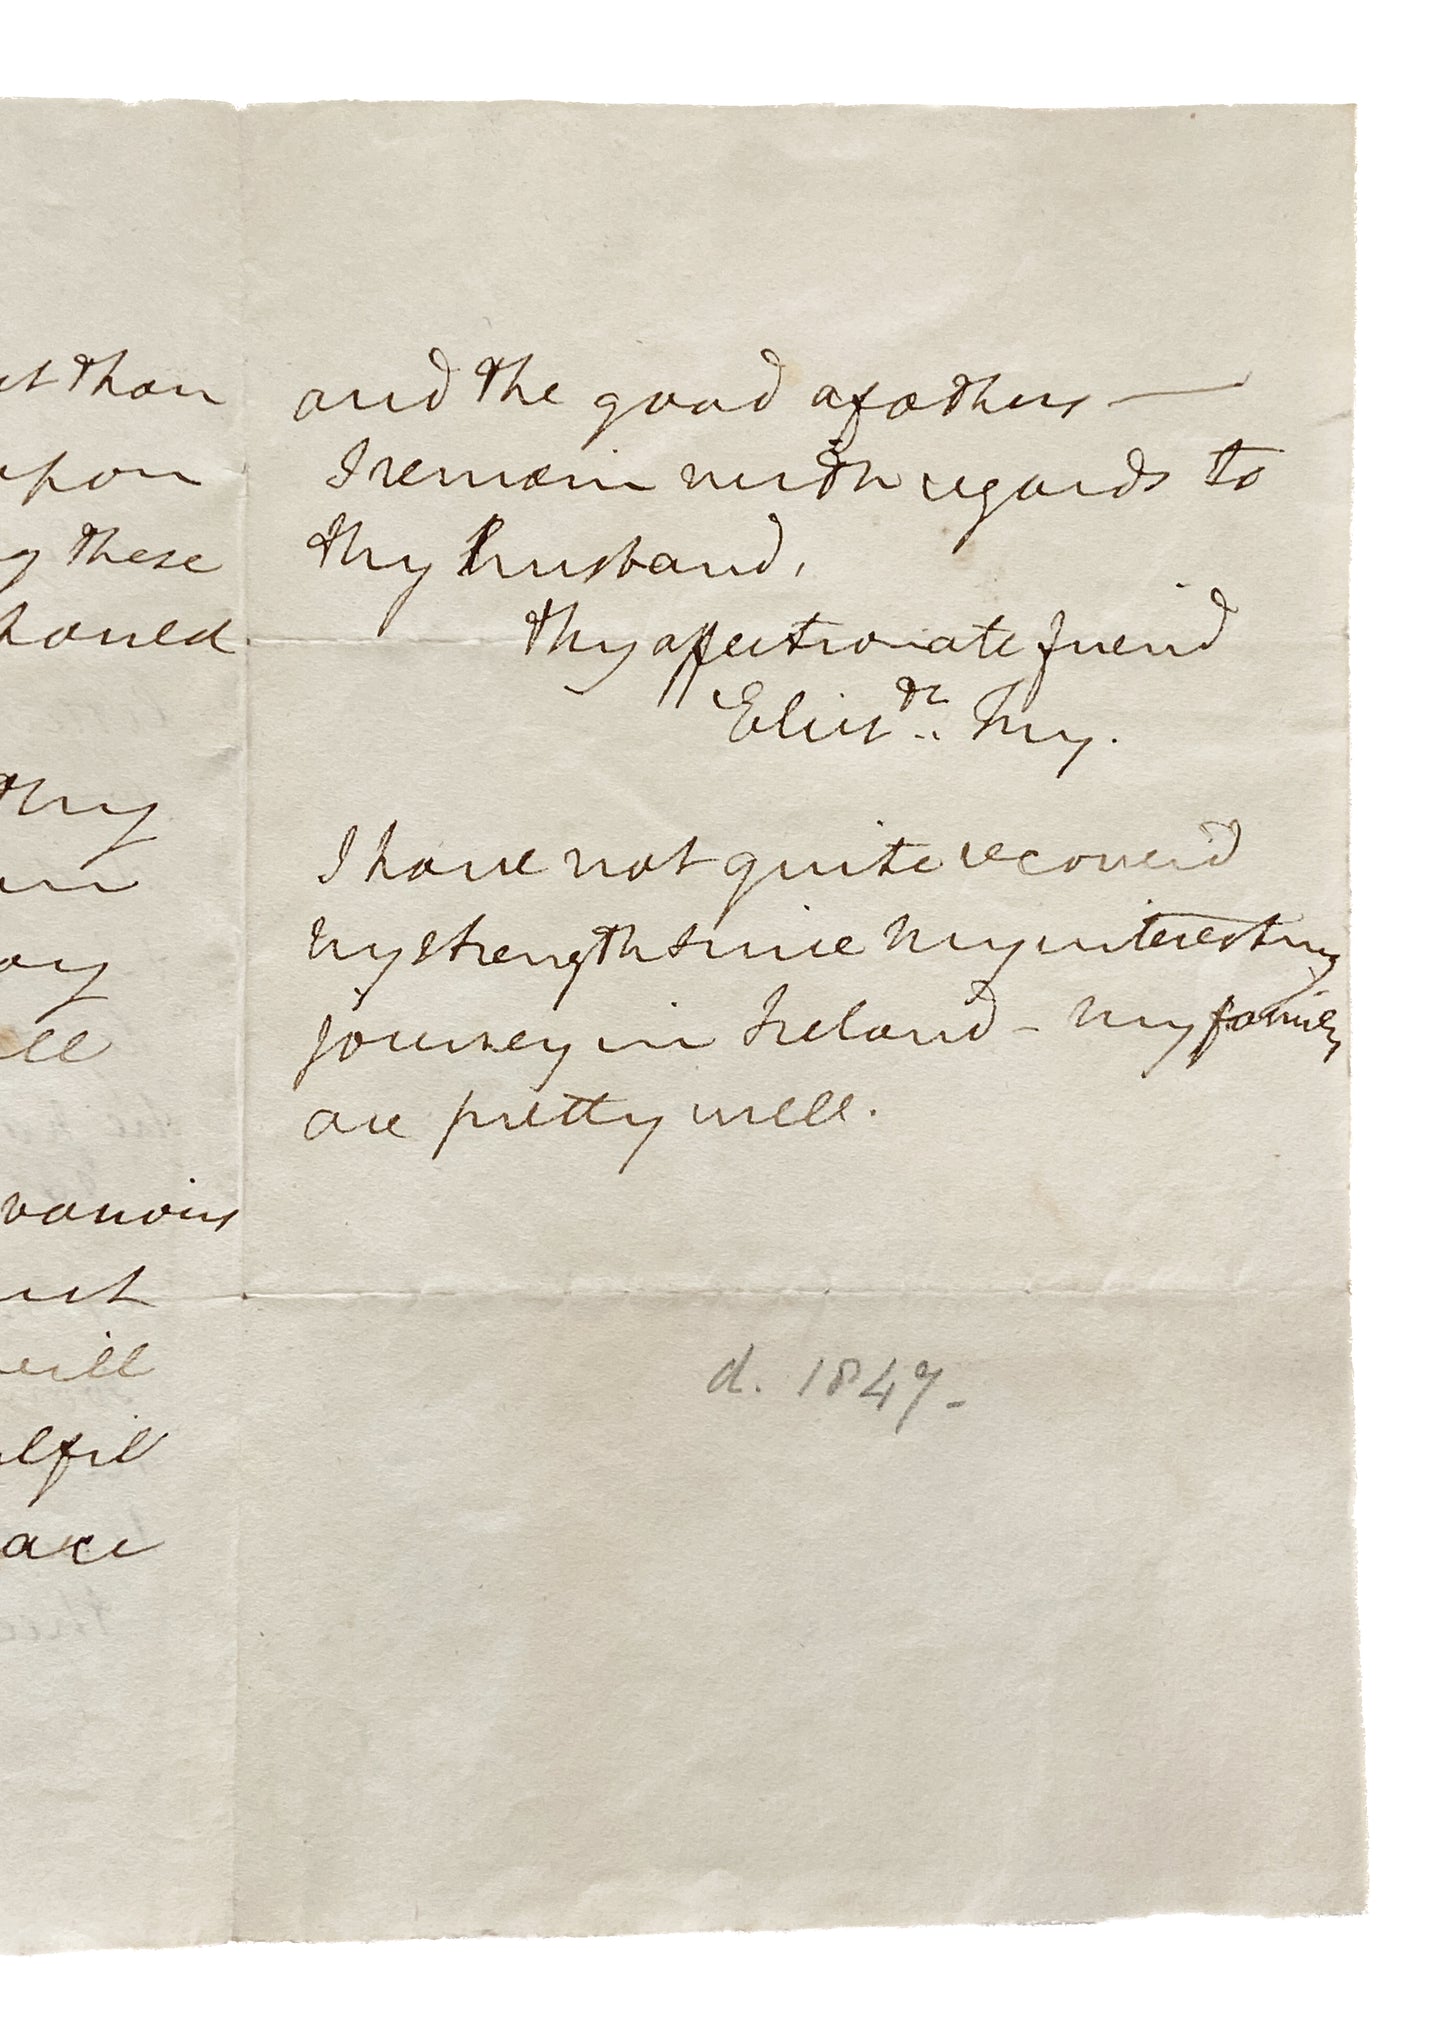 than
upon
these
thy
various
will
and the good of others —
I remain with regards to
thy husband,
thy affectionate friend
Eliz.th Fry.
I have not quite recover'd
my strength since my interesting
journey in Ireland - my family
are pretty well.
d. 1847-